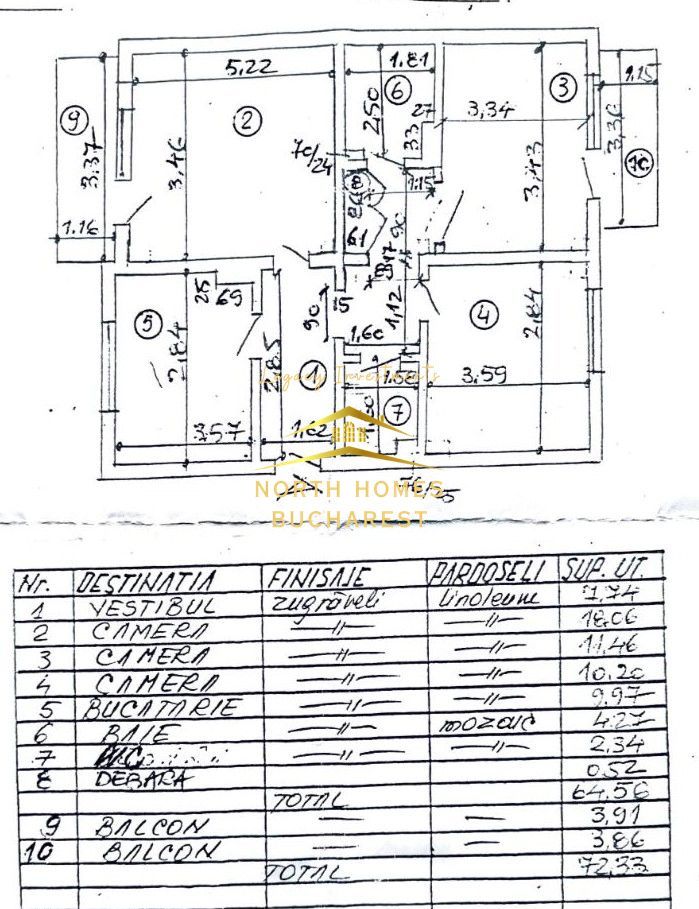 5,22
1.81
3
1,15
6
9
2
2,50
27
33
3,34
3,36
3,37
3,46
70/24
3,43
10
8
1.15
86
90
1.16
61
17
89
25
69
5
15
90
1,12
4
2,84
2,84
2.85
1,60
Legacy Investments
1
1.58
3.59
7
3.57
1,62
NORTH HOMES
BUCHAREST
Nr. DESTINATIA FINISAJE PARDOSELI SUP. UT.
1 VESTIBUL zugrăveli linoleum 7,74
2 CAMERA —//— —//— 18,06
3 CAMERA —//— —//— 11,46
4 CAMERA —//— —//— 10,20
5 BUCATARIE —//— —//— 9,97
6 BAIE —//— mozaic 4,27
7 —//— —//— 2,34
8 DEBARA 0,52
TOTAL 64.56
9 BALCON — — 3,91
10 BALCON — — 3,86
TOTAL 72,33